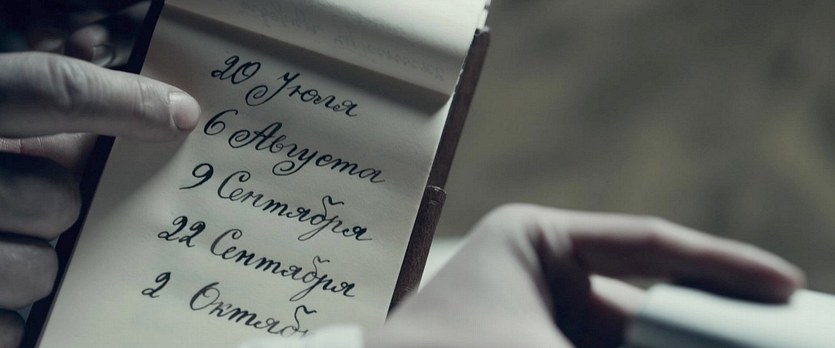 20 Июля
6 Августа
9 Сентября
22 Сентября
2 Октяб